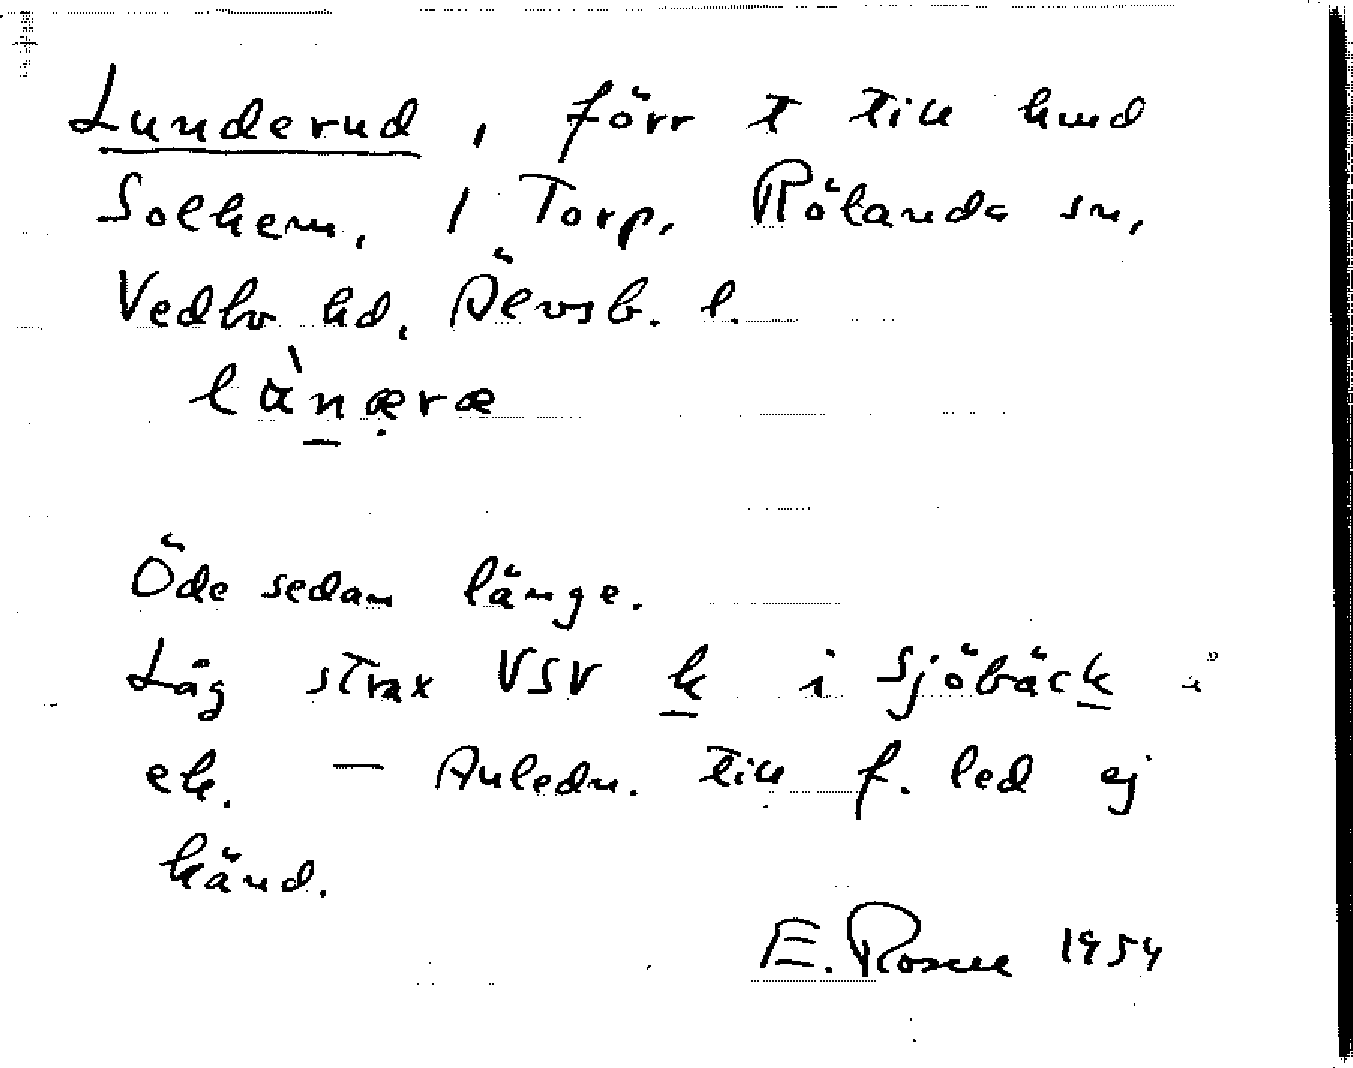 Lunderud, förr t till hmd
Solhem, 1 Torp, Rölanda sn,
Vedbo hd, Älvsb. l.
là̱næ̣ræ
Öde sedan länge.
Låg strax VSV k i Sjöbäck i
ek. — Anledn. till f. led ej
känd.
E. Rosell 1954